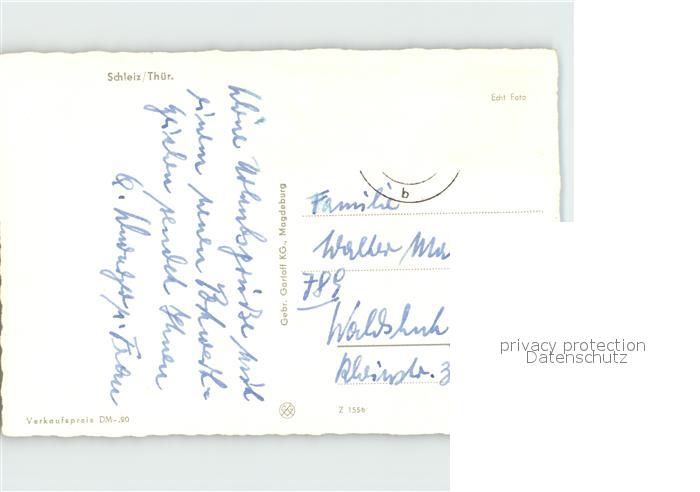 Schleiz/Thür.
Echt Foto
Liebe Urlaubsgrüße mit
einem neuen
sendet Ihnen
u. Frau
Gebr. Garloff KG., Magdeburg
b
Familie
Walter Ma
789
Waldshut
Rheinstr. 3
Verkaufspreis DM -.20
Z 1556
privacy protection
Datenschutz